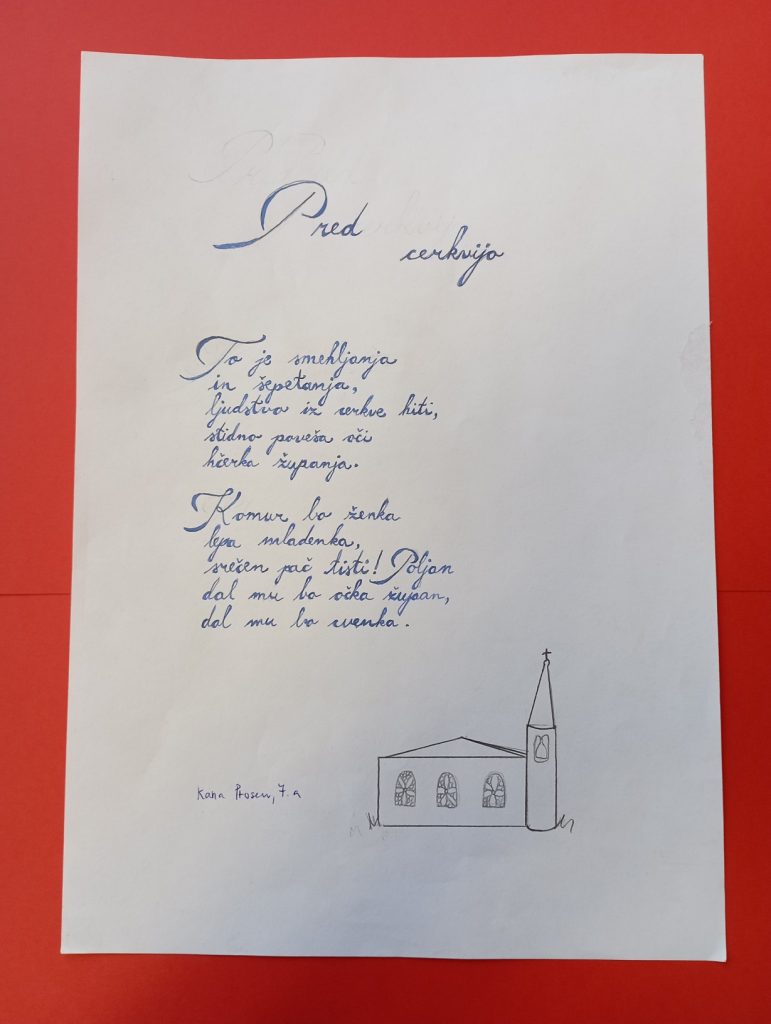 Pred
cerkvijo
To je smehljanja
in šepetanja,
ljudstvo iz cerkve hiti,
stidno poveša oči
hčerka županja.
Komur bo ženka
lepa mladenka,
srečen pač tisti! Poljan
dal mu bo očka župan,
dal mu bo cvenka.
Prosen, 7. a